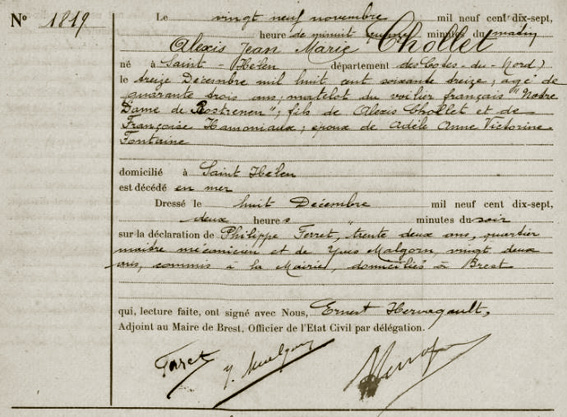 N° 1819
Le vingt neuf novembre mil neuf cent dix-sept,
heure de minuit trente minutes du matin
Alexis Jean Marie Chollet
né à Saint-Hélen département des Côtes-du-Nord)
le treize Décembre mil huit cent soixante treize; âgé de
quarante trois ans; matelot du voilier français "Notre
Dame de Rostrenen"; fils de Alexis Chollet et de
Françoise Hamoniaux; époux de Adèle Anne Victorine
Fontaine
domicilié à Saint Hélen
est décédé en mer
Dressé le huit Décembre mil neuf cent dix-sept,
deux heures " minutes du soir
sur la déclaration de Philippe Forret, trente deux ans, quartier
maître mécanicien et de Yves Malgorn vingt deux
ans, commis à la Mairie, domiciliés à Brest
qui, lecture faite, ont signé avec Nous, Ernest Hervagault,
Adjoint au Maire de Brest, Officier de l'Etat Civil par délégation.
Y. Malgorn